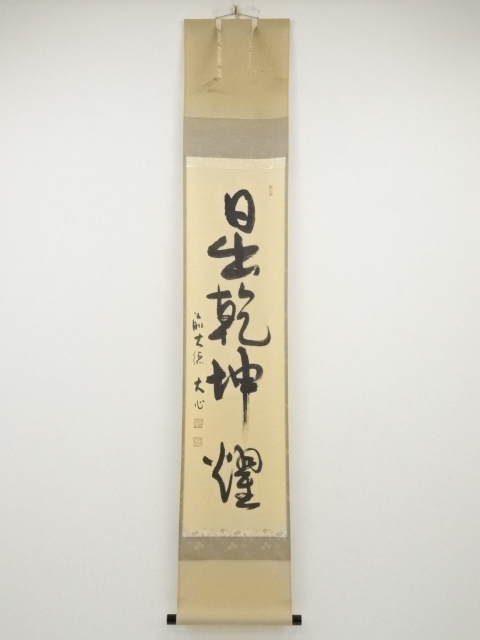 日出乾坤耀
前大徳 大心